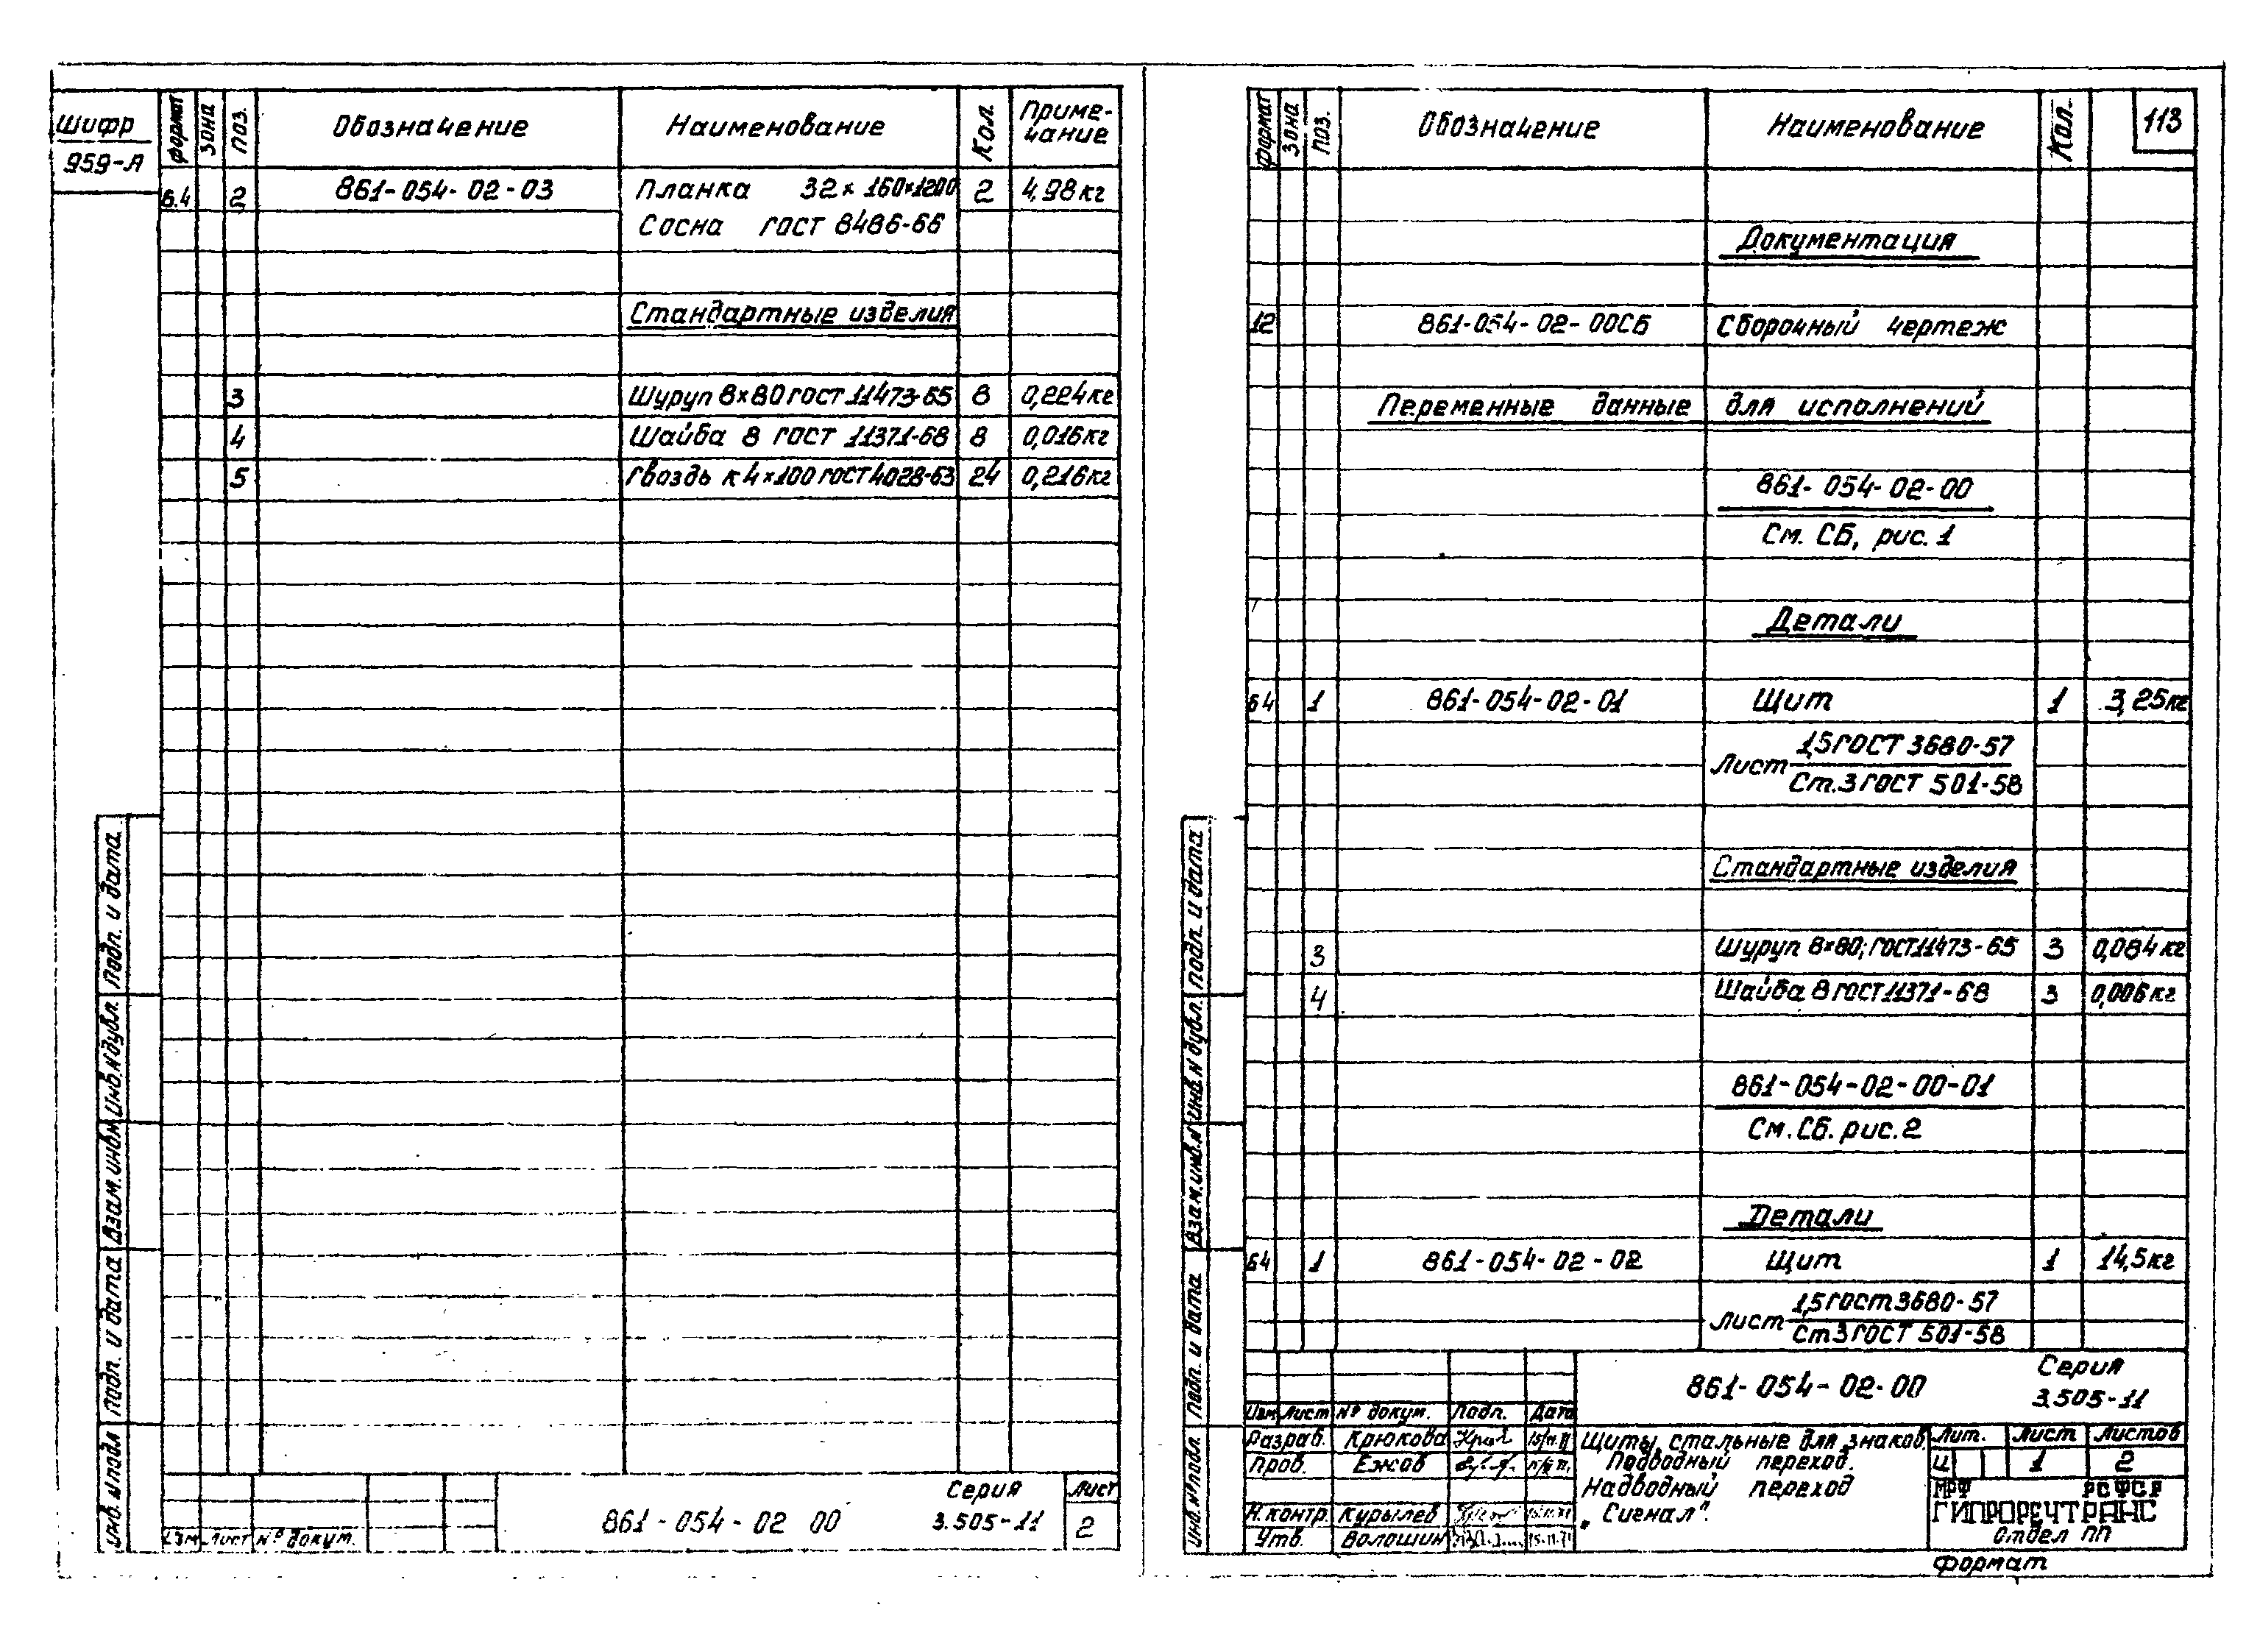 Шифр
959-А
формат Зона Поз. Обозначение Наименование Кол. Приме-
чание
Б.4 2 861-054-02-03 Планка 32×160×1200 2 4,98кг
Сосна ГОСТ 8486-66
Стандартные изделия
3 Шуруп 8×80 ГОСТ 11473-65 8 0,224кг
4 Шайба 8 ГОСТ 11371-68 8 0,016кг
5 Гвоздь К4×100 ГОСТ 4028-63 24 0,216кг
Инв.№подл Подп. и дата Взам.инв.№ Инв.№дубл. Подп. и дата
Изм Лист № докум.
861-054-02 00
Серия
3.505-11
Лист
2
формат Зона Поз. Обозначение Наименование Кол. 113
Документация
12 861-054-02-00СБ Сборочный чертеж
Переменные данные для исполнений
861-054-02-00
См. СБ, рис. 1
Детали
Б4 1 861-054-02-01 Щит 1 3,25кг
1,5 ГОСТ 3680-57
Лист
Ст.3 ГОСТ 501-58
Стандартные изделия
3 Шуруп 8×80; ГОСТ 11473-65 3 0,084кг
4 Шайба 8 ГОСТ 11371-68 3 0,006кг
861-054-02-00-01
См. СБ. рис. 2
Детали
Б4 1 861-054-02-02 Щит 1 14,5кг
1,5 ГОСТ 3680-57
Лист
Ст3 ГОСТ 501-58
Инв.№подл. Подп. и дата Взам.инв.№ Инв.№ дубл. Подп. и дата
861-054-02-00
Серия
3.505-11
Изм Лист № докум. Подп. Дата
Разраб. Крюкова
Пров. Ежов
Н.контр. Курылев
Утв. Волошин 15.11.71
Щиты стальные для знаков
Подводный переход.
Надводный переход
„Сигнал".
Лит. Лист Листов
И 1 2
МРФ РСФСР
ГИПРОРЕЧТРАНС
отдел ПП
формат